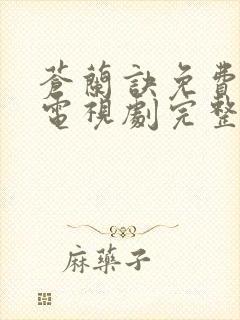 蒼蘭訣免費
電視劇完整
麻藥子